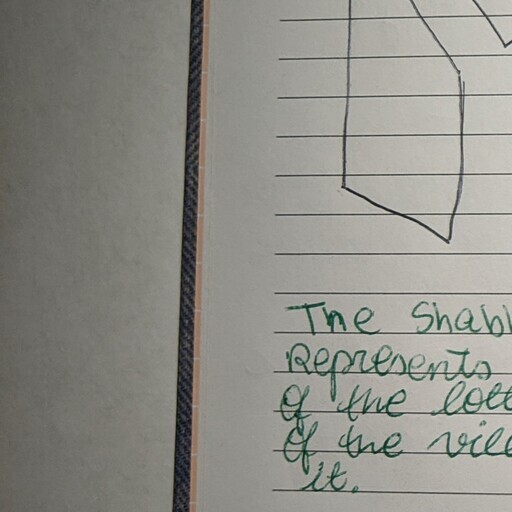 The Shab
Represents
of the lott
of the vill
it.